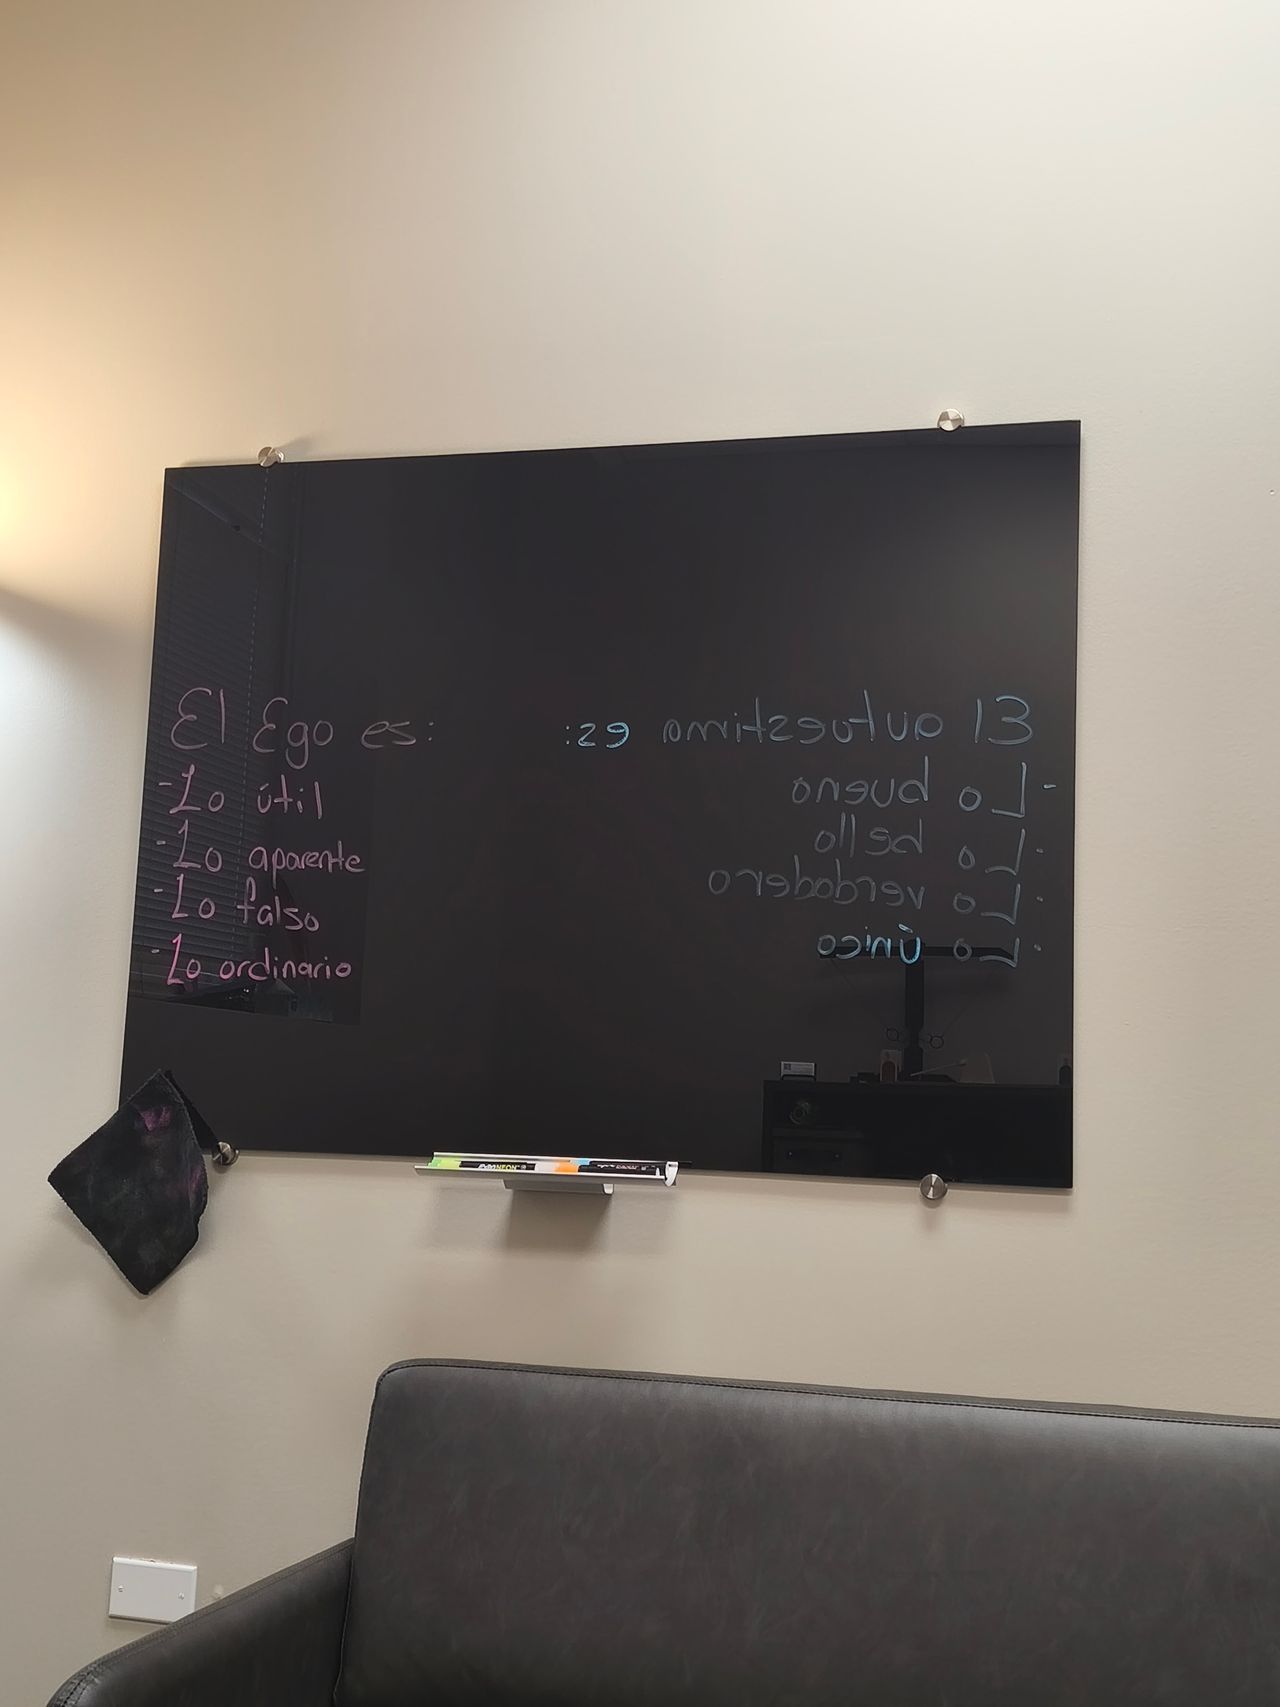 El Ego es:
-Lo útil
-Lo aparente
-Lo falso
-Lo ordinario
El autoestima es:
-Lo bueno
-Lo bello
-Lo verdadero
-Lo único
NEON